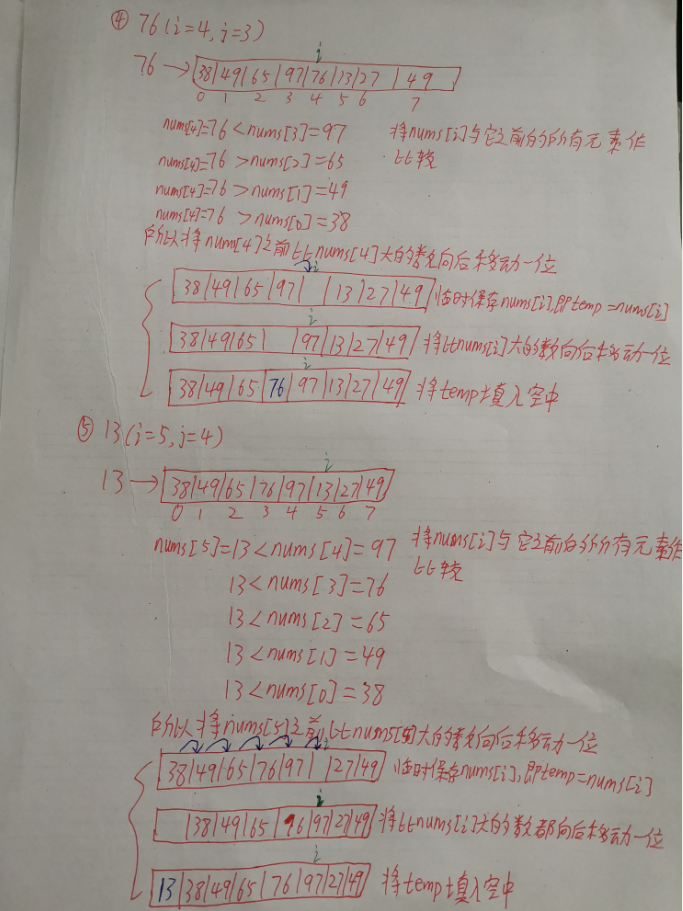 ④ 76(i=4,j=3)
i
76→ 38|49|65|97|76|13|27|49
0 1 2 3 4 5 6 7
nums[4]=76<nums[3]=97 将nums[i]与它之前的所有元素作
nums[4]=76>nums[2]=65 比较
nums[4]=76>nums[1]=49
nums[4]=76>nums[0]=38
所以将num[4]之前比nums[4]大的数向后移动一位
i
38|49|65|97| |13|27|49 临时保存nums[i],即temp=nums[i]
i
38|49|65| |97|13|27|49 将比nums[i]大的数向后移动一位
i
38|49|65|76|97|13|27|49 将temp填入空中
⑤ 13(i=5,j=4)
i
13→ 38|49|65|76|97|13|27|49
0 1 2 3 4 5 6 7
nums[5]=13<nums[4]=97 将nums[i]与它之前的所有元素作
13<nums[3]=76 比较
13<nums[2]=65
13<nums[1]=49
13<nums[0]=38
所以将nums[5]之前比nums[5]大的数向后移动一位
i
38|49|65|76|97| |27|49 临时保存nums[i],即temp=nums[i]
i
|38|49|65|96|97|27|49 将比nums[i]大的数都向后移动一位
i
13|38|49|65|76|97|27|49 将temp填入空中